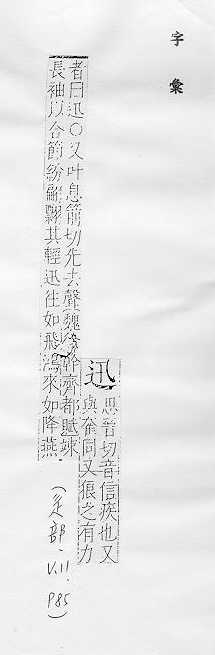 字彙
迅
思晉切音信疾也又
與奞同又狼之有力
者曰迅○又叶息箭切先去聲魏徐幹齊都賦竦
長袖以合節紛翩翻其輕迅往如飛鴻來如降燕
(辵部. V.11. P85)